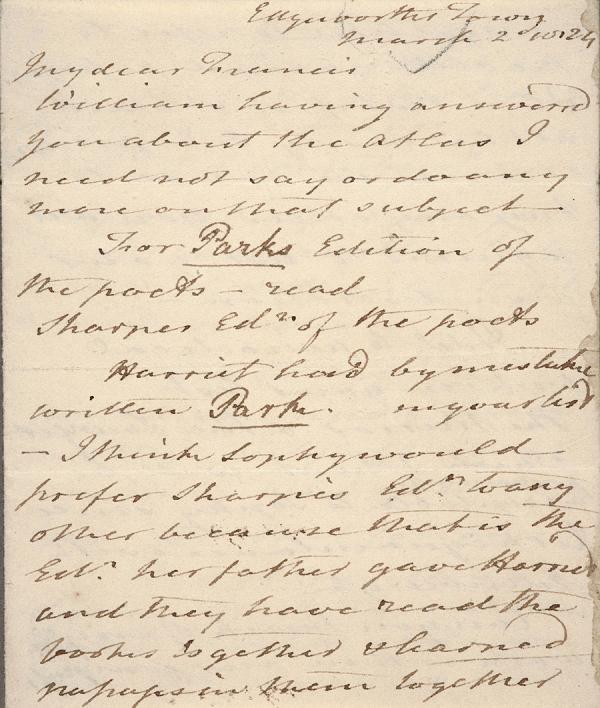 Edgeworths Town
March 2d 1824
My dear Francis
William having answered
you about the Atlas I
need not say or do any
more on that subject
For Parks Edition of
the poets – read
Sharpes Edn. of the poets
Harriet had by mistake
written Park. in your list
– I think Sophy would
prefer Sharpes Edn to any
other because that is the
Edn. her father gave Harriet
and they have read the
books together & learned
in them together